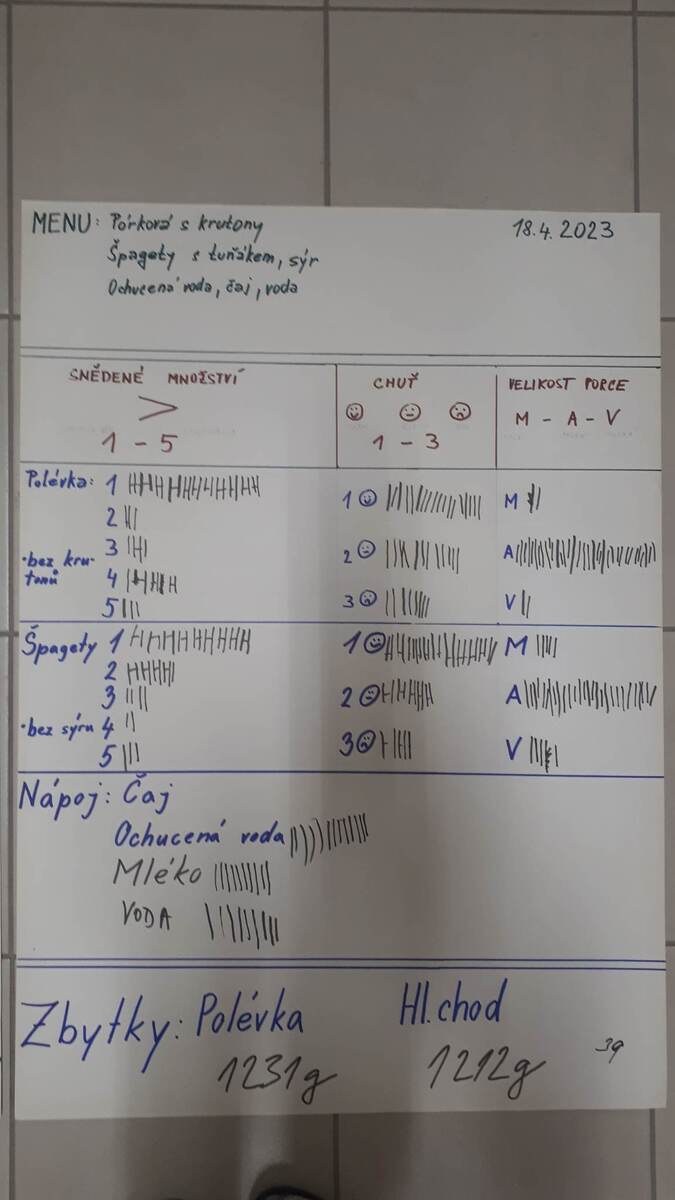 MENU: Pórková s krutony
18.4.2023
Špagety s tuňákem, sýr
Ochucená voda, čaj, voda
SNĚDENÉ MNOŽSTVÍ
>
1 - 5
CHUŤ
1 - 3
VELIKOST PORCE
M - A - V
Polévka: 1
2
3
·bez kru-
tonů
4
5
1
2
3
M
A
V
Špagety 1
2
3
·bez sýru 4
5
1
2
3
M
A
V
Nápoj: Čaj
Ochucená voda
Mléko
VODA
Zbytky: Polévka Hl. chod
1231g 1212g